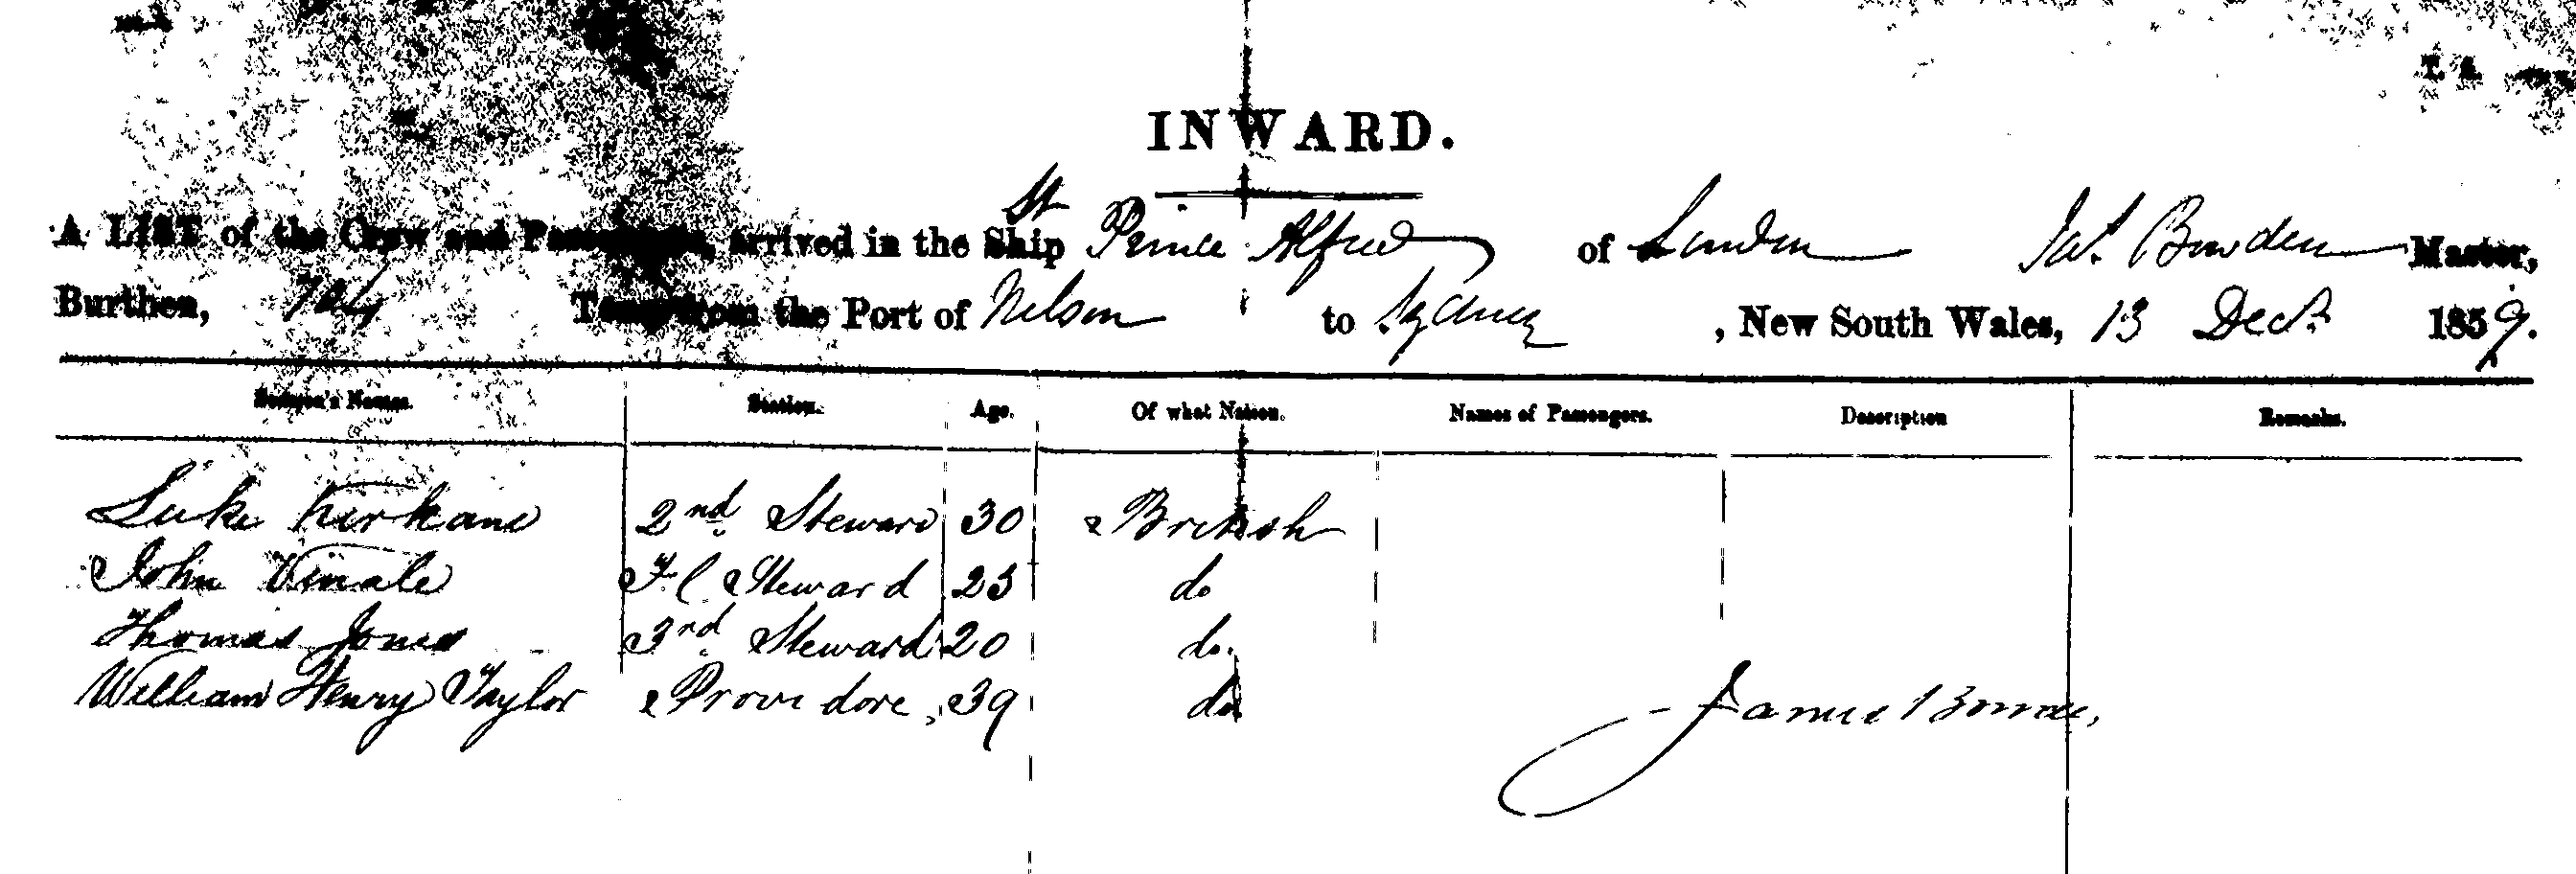 INWARD.
St
A LIST of the Crew and Passengers, arrived in the Ship Prince Alfred of London Jas. Bowden Master,
Burthen, 704 Tons, from the Port of Nelson to Sydney, New South Wales, 13 Decr. 1859.
Seamen's Names. Station. Age. Of what Nation. Names of Passengers. Description Remarks.
Luke Kirkane 2nd Steward 30 British
John Vinale F C Steward 23 do
Thomas Jones 3rd Steward 20 do.
William Henry Taylor Providore, 39 do
James